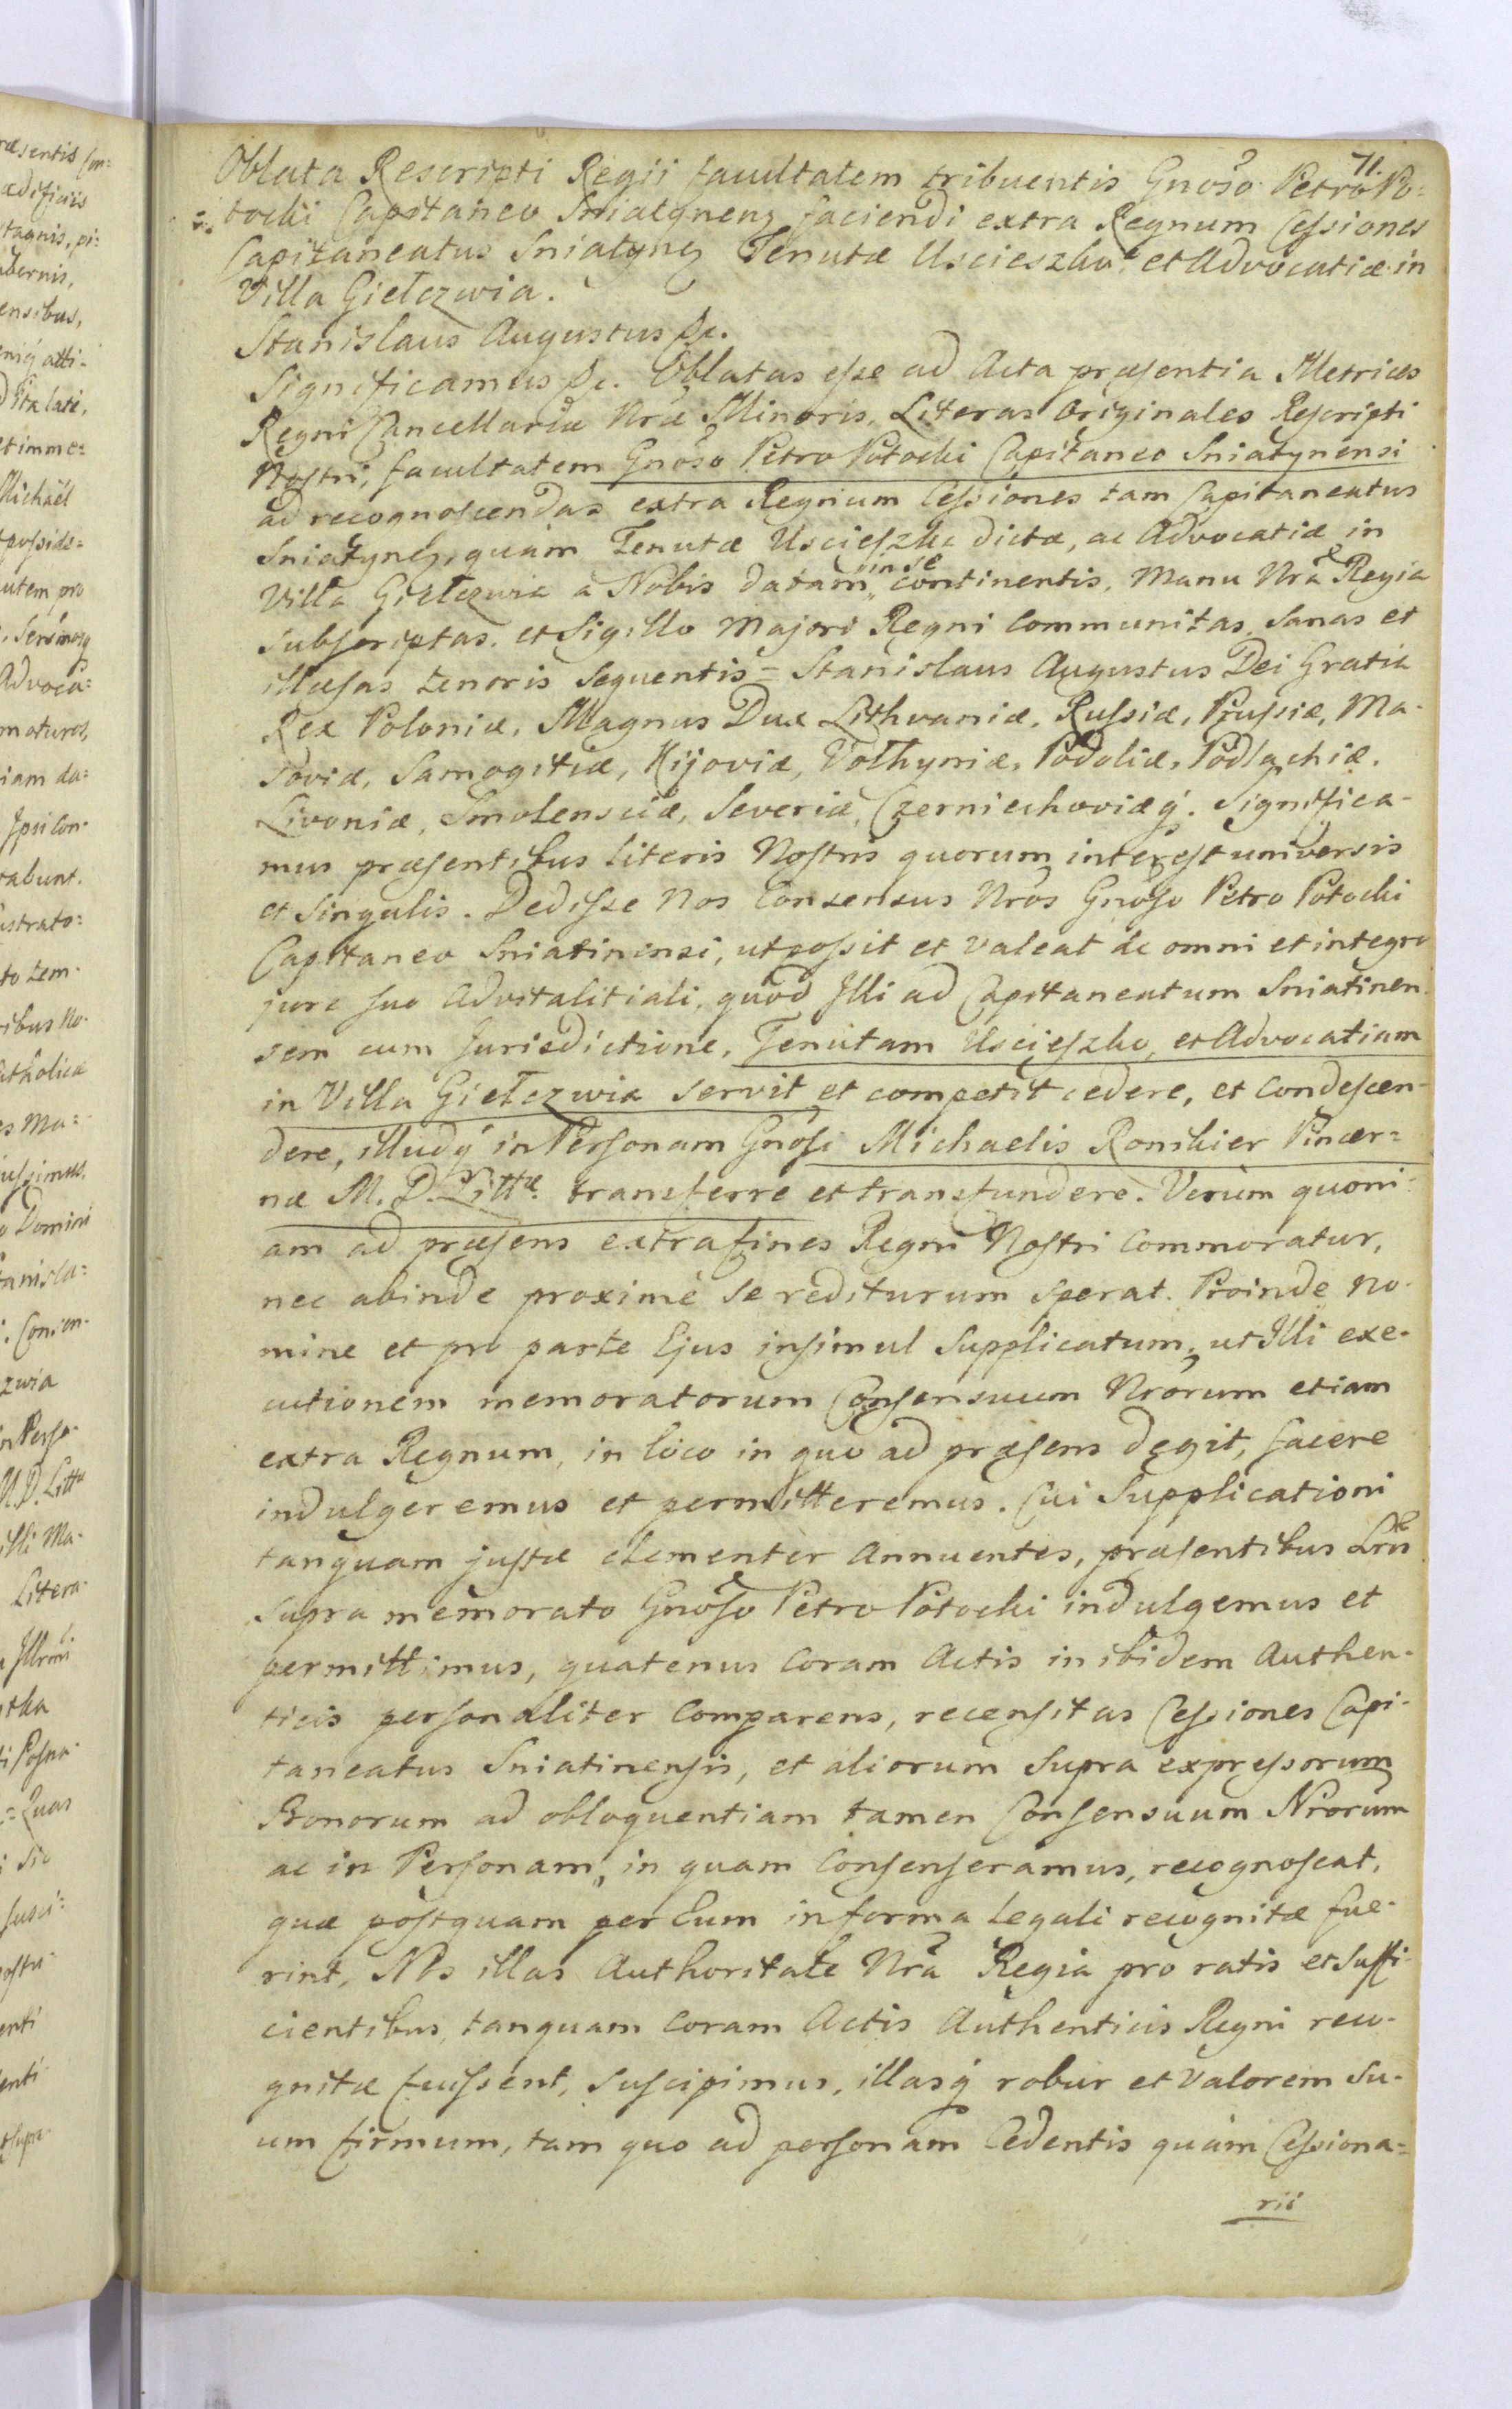 71.
Oblata Rescripti Regii facultatem tribuentis Gnoso Petro Po=
tocki Capitaneo Sniatynens faciendi extra Regnum Cessiones
Capitaneatus Sniatyne Tenutæ Uscieszko et Advocatiæ in
Villa Giełczwia.
Stanislaus Augustus &c.
Significamus &c. Oblatas esse ad Acta præsentia Metrices
Regni Cancellariæ Nræ Minoris, Literas Originales Rescripti
Nostri, facultatem Gnoso Petro Potocki Capitaneo Sniatynensi
ad recognoscendas extra Regnum Cessiones tam Capitaneatus
Sniatynes, quam Tenutæ Uscieszko dictæ, ac Advocatiæ in
Villa Giełczwia a Nobis datam in se continentis, Manu Nra Regia
subscriptas, et Sigillo Majori Regni Communitas, Sanas et
illæsas tenoris sequentis = Stanislaus Augustus Dei Gratia
Rex Poloniæ, Magnus Dux Lithvaniæ, Russiæ, Prussiæ, Ma-
soviæ, Samogitiæ, Kijoviæ, Volhyniæ, Podoliæ, Podlachiæ,
Livoniæ, Smolensciæ, Severiæ, Czerniechoviæq. Significa-
mus præsentibus literis Nostris quorum interest universis
et singulis. Dedisse Nos Consensus Nros Gnoso Petro Potocki
Capitaneo Sniatinensi, ut possit et valeat de omni et integro
jure suo Advitalitiali, quod Illi ad Capitaneatum Sniatinen-
sem cum Jurisdictione, Tenutam Uscieszko, et Advocatiam
in Villa Giełczwia servit et competit cedere, et Condescen-
dere, illudq in Personam Gnosi Michaelis Ronikier Pincer=
næ M. D. Littæ transferre et transfundere. Verùm quoni-
am ad præsens extra fines Regni Nostri Commoratur,
nec abinde proximè se rediturum sperat. Proinde no-
mine et pro parte Ejus insimul Supplicatum, ut Illi exe-
cutionem memoratorum Consensuum Nrorum etiam
extra Regnum, in loco in quo ad præsens degit, facere
indulgeremus et permitteremus. Cui Supplicationi
tanquam justæ clementer Annuentes, præsentibus Lris
supra memorato Gnoso Petro Potocki indulgemus et
permittimus, quatenus Coram Actis inibidem Authen-
ticis personaliter Comparens, recensitas Cessiones Capi-
taneatus Sniatinensis, et aliorum supra expressorum
Bonorum ad obloquentiam tamen Consensuum Nrorum
ac in Personam, in quam Consenseramus, recognoscat,
quæ postquam per Eum in forma Legali recognitæ fue-
rint, Nos illas Authoritate Nra Regia pro ratis et suffi-
cientibus, tanquam Coram Actis Authenticis Regni reco-
gnitæ fuissent, suscipimus, illasq robur et valorem su-
um firmum, tam quo ad personam Cedentis quàm Cessiona=
rii